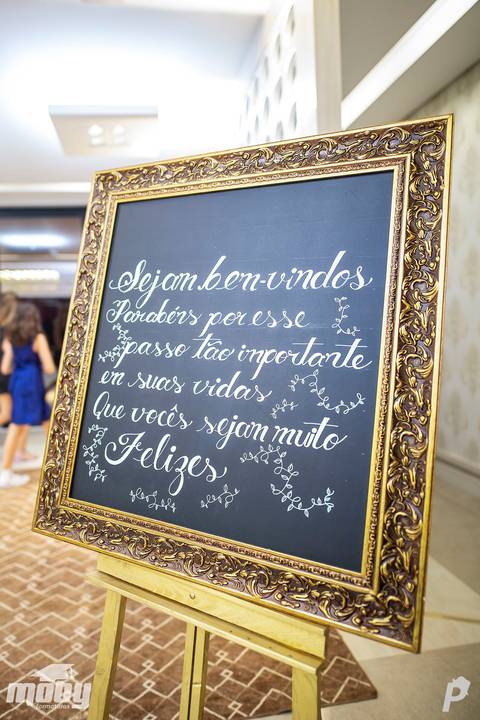 Sejam bem-vindos
Parabéns por esse
passo tão importante
em suas vidas
Que vocês sejam muito
Felizes
moby
formaturas